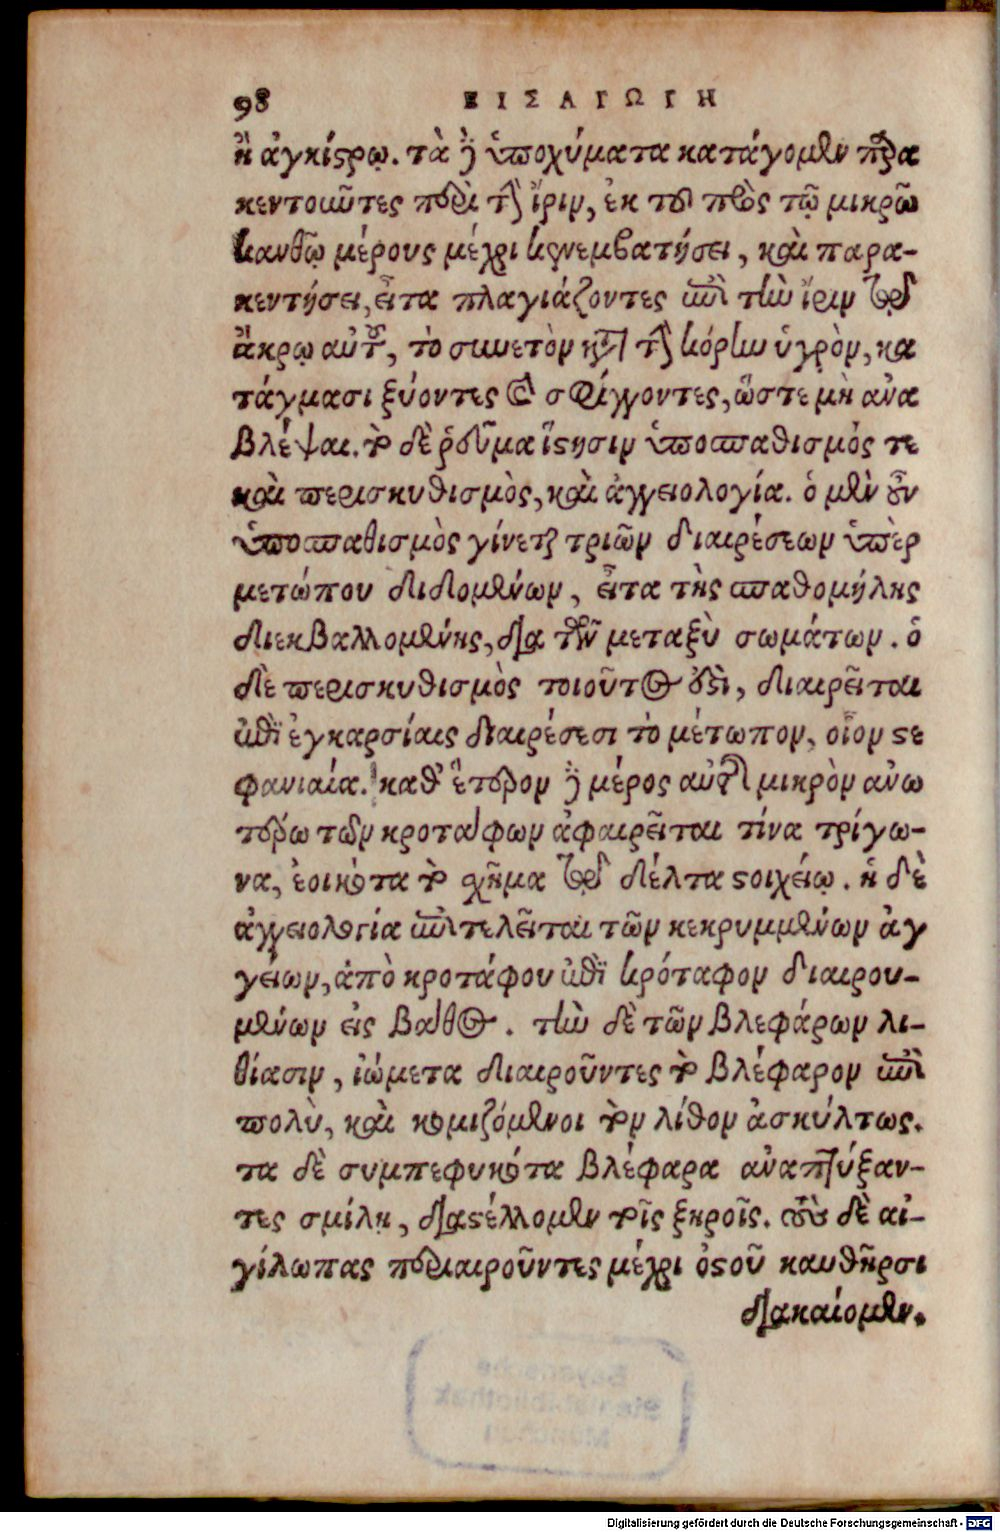 98 ΕΙΣΑΓΩΓΗ
ἢ ἀγκίστρῳ. τὰ δὲ ὑποχύματα κατάγομεν παρα
κεντοῦντες περὶ τὴν ἴριν, ἐκ τοῦ πρὸς τῷ μικρῷ
κανθῷ μέρους μέχρι κενεμβατήσει, καὶ παρα-
κεντήσει, εἶτα πλαγιάζοντες ἐπὶ τὴν ἴριν τῷ
ἄκρῳ αὐτοῦ, τὸ συνετὸν κατὰ τὴν κόρην ὑγρὸν, κα
τάγμασι ξύοντες καὶ σφίγγοντες, ὥστε μὴ ἀνα
βλέψαι. τὸ δὲ ῥεῦμα ἵστησιν ὑποσπαθισμός τε
καὶ περισκυθισμὸς, καὶ ἀγγειολογία. ὁ μὲν οὖν
ὑποσπαθισμὸς γίνεται τριῶν διαιρέσεων ὑπὲρ
μετώπου διδομένων, εἶτα τῆς σπαθομήλης
διεκβαλλομένης, διὰ τῶν μεταξὺ σωμάτων. ὁ
δὲ περισκυθισμὸς τοιοῦτος ἐστὶ, διαιρεῖται
ἐπὶ ἐγκαρσίαις διαιρέσεσι τὸ μέτωπον, οἷον στε
φανιαία. καθ' ἕτερον δὲ μέρος αὐτῆς μικρὸν ἀνω
τέρω τῶν κροτάφων ἀφαιρεῖται τίνα τρίγω-
να, ἐοικότα τὸ σχῆμα τῷ δέλτα στοιχείῳ. ἡ δὲ
ἀγγειολογία ἐπιτελεῖται τῶν κεκρυμμένων ἀγ
γείων, ἀπὸ κροτάφου ἐπὶ κρόταφον διαιρου-
μένων εἰς βάθος. τὴν δὲ τῶν βλεφάρων λι-
θίασιν, ἰώμεθα διαιροῦντες τὸ βλέφαρον ἐπὶ
πολὺ, καὶ κομιζόμενοι τὸν λίθον ἀσκύλτως.
τα δὲ συμπεφυκότα βλέφαρα ἀναπτύξαν-
τες σμίλῃ, διαστέλλομεν τοῖς ξηροῖς. τοὺς δὲ αἰ-
γίλωπας περιαιροῦντες μέχρι ὀστοῦ καυθῆρσι
διακαίομεν.
Bayerische
Staatsbibliothek
München
Digitalisierung gefördert durch die Deutsche Forschungsgemeinschaft - DFG